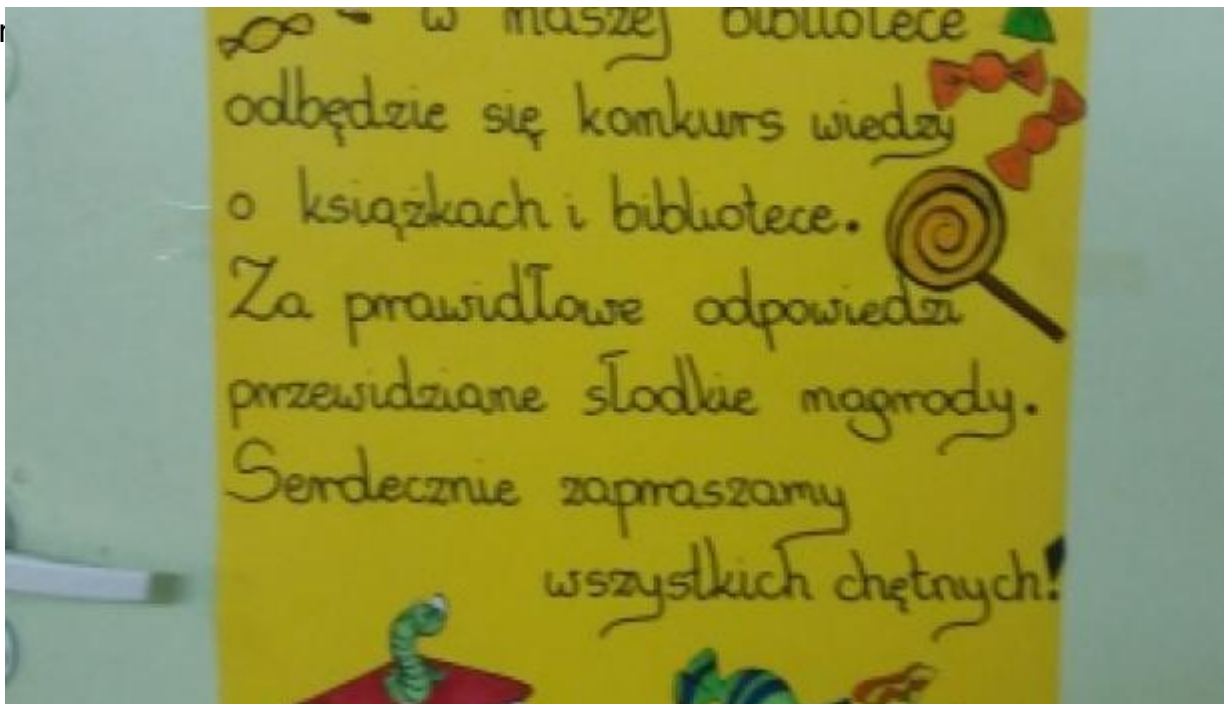 w naszej bibliotece
odbędzie się konkurs wiedzy
o książkach i bibliotece.
Za prawidłowe odpowiedzi
przewidziane słodkie nagrody.
Serdecznie zapraszamy
wszystkich chętnych!